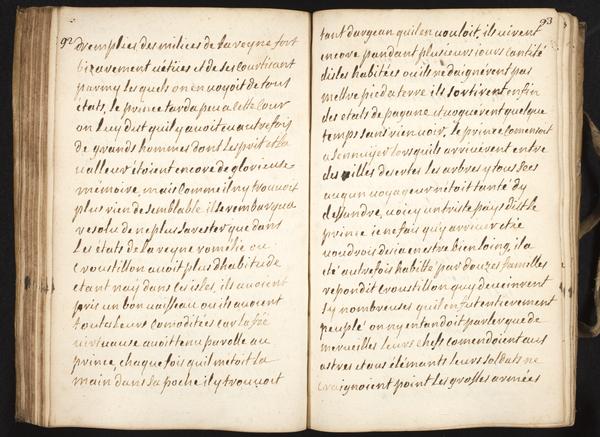 92
remplies des milices de la royne fort
bizarement vétües et de ses courtisant
parmy lesquels on en voyoit de tous
états, le prince tarda peu a cette cour
on luy dit quil y avoit eu autre fois
de grands hommes dons lesprit et la
valleur étoient encore de glorieuse
mémoire, mais comme il ny trouvoit
plus rien de semblable il se rembarqua
resolu de ne plus sarester que dans
les états de la reyne romélie ou
croustillon avoit plus dhabitude
etant nay dans ces isles, ils avoient
pris un bon vaisseau ou ils avoient
toutes leurs comoditées car la fée
virtueuse avoit tenu parolle au
prince, chaque fois quil métoit la
main dans sa poche il y trouvoit
93
tant dargean quil en vouloit, ils virent
encore pandant plusieurs jours cantité
disles habitées ou ils ne daignérent pas
mettre pied a terre ils sortirent enfin
des etats de pagane et voguérent quelque
temps sans rien voir, le prince comensoit
a sennuyer lorsquils arrivérent entre
des isles desertes les arbres y tous secs
aucun voyageur nétoit tanté dy
dessandre, voicy un triste pays dist le
prince ie ne fais quy arriver et ie
voudrois desia en estre bien loing, il a
été autrefois habitté par douzes familles
repondit croustillon quy devinrent
sy nombreuses quil en fut entierement
peuplé on ny entandoit parler que de
merveilles leurs chefs comendoient aux
astres et aux élémants leurs soldats ne
craignoient point les grosses armées